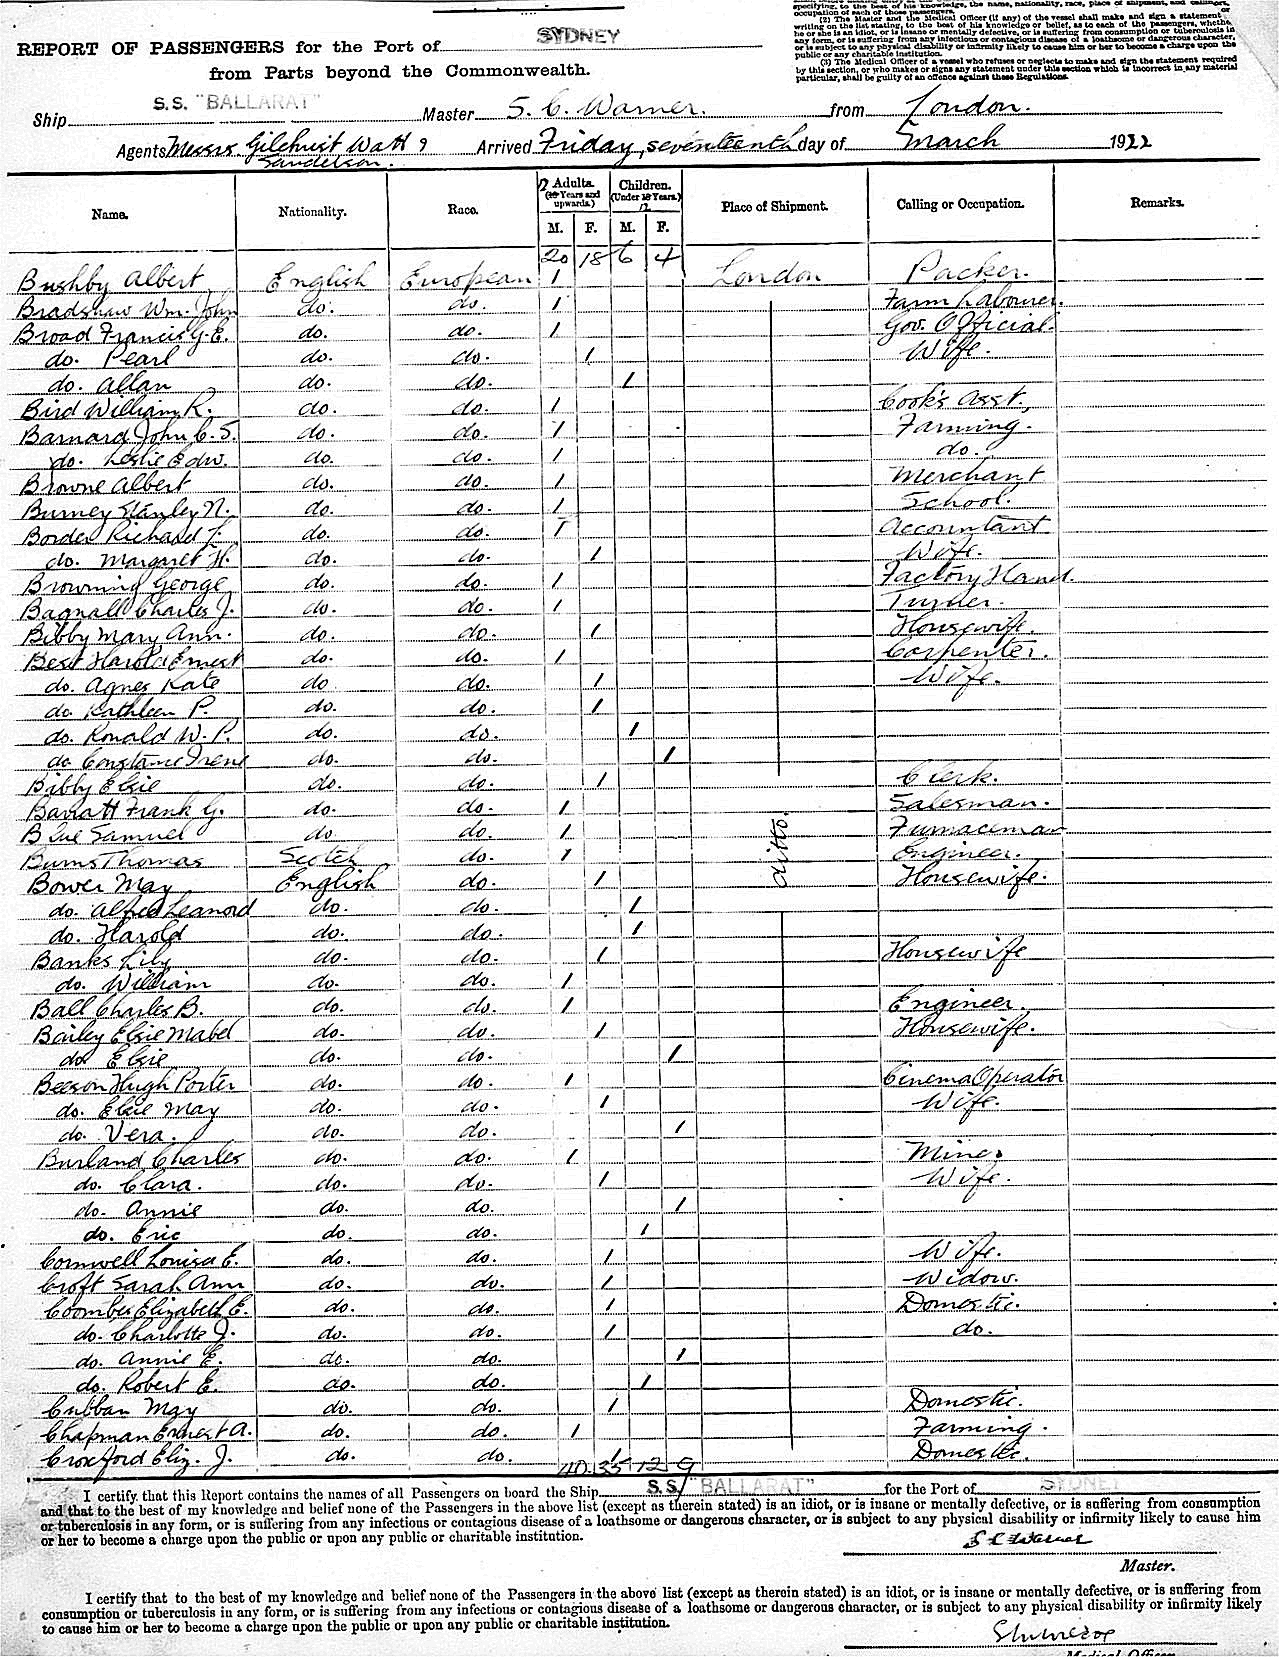 specifying, to the best of his knowledge, the name, nationality, race, place of shipment, and calling, or
occupation of each of those passengers.
(2) The Master and the Medical Officer (if any) of the vessel shall make and sign a statement in
writing on the list stating, to the best of his knowledge or belief, as to each of the passengers, whether
he or she is an idiot, or is insane or mentally defective, or is suffering from consumption or tuberculosis in
any form, or is suffering from any infectious or contagious disease of a loathsome or dangerous character,
or is subject to any physical disability or infirmity likely to cause him or her to become a charge upon the
public or any public or charitable institution.
(3) The Medical Officer of a vessel who refuses or neglects to make and sign the statement required
by this section, or who makes or signs any statement under this section which is incorrect in any material
particular, shall be guilty of an offence against these Regulations.
REPORT OF PASSENGERS for the Port of SYDNEY
from Parts beyond the Commonwealth.
Ship S.S. "BALLARAT" Master S. C. Warner. from London.
Agents Messrs Gilchrist Watt & Sanderson. Arrived Friday, seventeenth day of March 1922
Name. Nationality. Race. 12 Adults. (Years and upwards.) Children. (Under Years.) 12 Place of Shipment. Calling or Occupation. Remarks.
M. F. M. F.
20 18 6 4
Bushby Albert English European 1 London Packer.
Bradshaw Wm. John do. do. 1 Farm Labourer.
Broad Francis G. E. do. do. 1 Gov. Official.
do. Pearl do. do. 1 Wife.
do. Allan do. do. 1
Bird William R. do. do. 1 Cook's Asst.,
Barnard John C. S. do. do. 1 Farming.
do. Leslie Edw. do. do. 1 do.
Browne Albert do. do. 1 Merchant
Burney Stanley N. do. do. 1 School.
Border Richard T. do. do. 1 Accountant
do. Margaret H. do. do. 1 Wife.
Browning George do. do. 1 Factory Hand.
Bagnall Charles J. do. do. 1 Turner.
Bibby Mary Ann. do. do. 1 Housewife.
Best Harold Ernest do. do. 1 Carpenter.
do. Agnes Kate do do. 1 Wife.
do. Kathleen P. do. do. 1
do. Ronald W. P. do. do. 1
do Constance Irene do. do. 1
Bibby Elsie do. do. 1 Clerk.
Barratt Frank G. do. do. 1 Salesman.
Blue Samuel do. do. 1 ditto. Furnaceman
Burns Thomas Scotch do. 1 Engineer.
Bower May English do. 1 Housewife.
do. Alfred Leonord do. do. 1
do. Harold do. do. 1
Banks Lily do. do. 1 Housewife
do. William do. do. 1
Ball Charles B. do. do. 1 Engineer.
Bailey Elsie Mabel do. do. 1 Housewife.
do. Elsie do. do. 1
Beeson Hugh Porter do. do. 1 Cinema Operator
do. Elsie May do. do. 1 Wife.
do. Vera. do. do. 1
Burland Charles do. do. 1 Miner
do. Clara. do. do. 1 Wife.
do. Annie do. do. 1
do. Eric do. do. 1
Cornwell Louisa E. do. do. 1 Wife.
Croft Sarah Ann do. do. 1 Widow.
Coomber Elizabeth E. do. do. 1 Domestic.
do. Charlotte J. do. do. 1 do.
do. Annie E. do. do. 1
do. Robert E. do. do. 1
Cubban May do. do. 1 Domestic.
Chapman Ernest A. do. do. 1 Farming.
Croxford Eliz. J. do. do. 1 Domestic.
40 35 12 9
I certify that this Report contains the names of all Passengers on board the Ship S.S. "BALLARAT" for the Port of SYDNEY
and that to the best of my knowledge and belief none of the Passengers in the above list (except as therein stated) is an idiot, or is insane or mentally defective, or is suffering from consumption
or tuberculosis in any form, or is suffering from any infectious or contagious disease of a loathsome or dangerous character, or is subject to any physical disability or infirmity likely to cause him
or her to become a charge upon the public or upon any public or charitable institution.
S C Warner
Master.
I certify that to the best of my knowledge and belief none of the Passengers in the above list (except as therein stated) is an idiot, or is insane or mentally defective, or is suffering from
consumption or tuberculosis in any form, or is suffering from any infectious or contagious disease of a loathsome or dangerous character, or is subject to any physical disability or infirmity likely
to cause him or her to become a charge upon the public or upon any public or charitable institution.
Medical Officer.